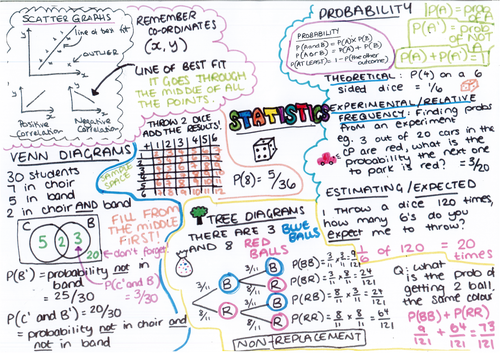 SCATTER GRAPHS
line of best fit
OUTLIER
Positive
Correlation
Negative
Correlation
REMEMBER
CO-ORDINATES
(x, y)
LINE OF BEST FIT
IT GOES THROUGH
THE MIDDLE OF ALL
THE POINTS.
VENN DIAGRAMS
30 students
7 in choir
5 in band
2 in choir AND band
C
B
5
2
3
20
don't forget
FILL FROM
THE MIDDLE
FIRST!
P(B') = probability not in
band
= 25/30
P(C' and B)
= 3/30
P(C' and B') = 20/30
= probability not in choir and
not in band
THROW 2 DICE
ADD THE RESULTS!
+ 1 2 3 4 5 6
SAMPLE
SPACE
STATISTICS
P(8) = 5/36
TREE DIAGRAMS
THERE ARE 3 BLUE
BALLS
AND 8 RED
BALLS
3/11
B
8/11
R
3/11
B
8/11
R
3/11
B
8/11
R
P(BB) = 3/11 × 3/11 = 9/121
P(BR) = 3/11 × 8/11 = 24/121
P(RB) = 8/11 × 3/11 = 24/121
P(RR) = 8/11 × 8/11 = 64/121
NON-REPLACEMENT
PROBABILITY
PROBABILITY
P(A and B) = P(A) x P(B)
P(A or B) = P(A) + P(B)
P(AT LEAST) = 1 - P(the other
outcome)
P(A) = prob
of A
P(A') = prob
of NOT
A
P(A) + P(A') = 1
THEORETICAL: P(4) on a 6
sided dice = 1/6
EXPERIMENTAL/RELATIVE
FREQUENCY: Finding probs
from an experiment
eg. 3 out of 20 cars in the
cp are red, what is the
probability the next one
to park is red? = 3/20
ESTIMATING/EXPECTED
I throw a dice 120 times,
how many 6's do you
expect me to throw?
1/6 of 120 = 20
times
Q: what is
the prob of
getting 2 ball,
the same colour
P(BB) + P(RR)
9/121 + 64/121 = 73/121